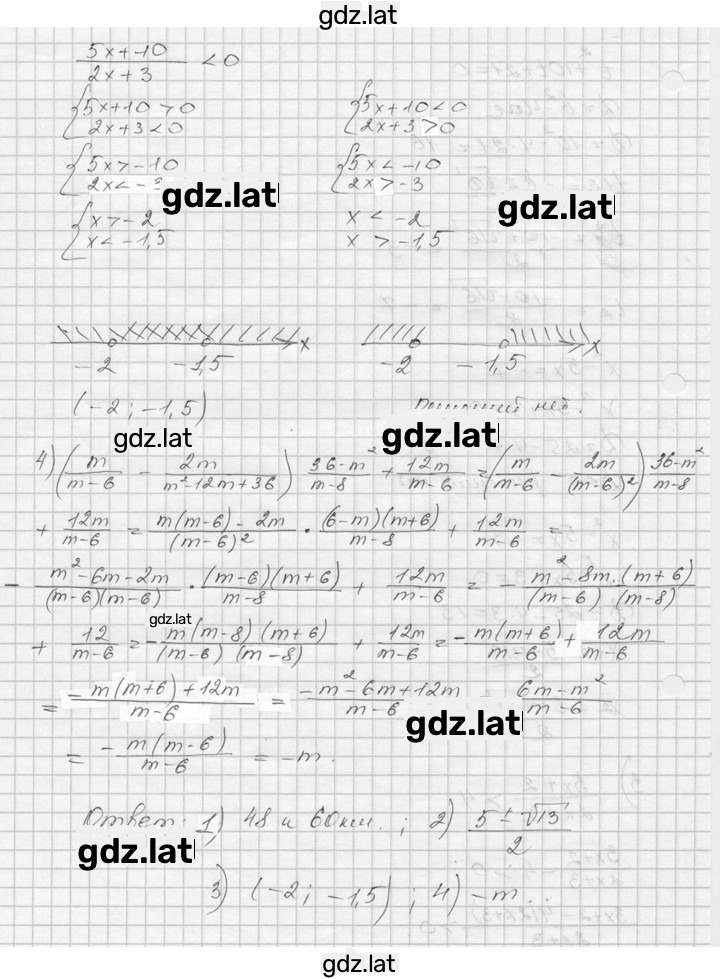 gdz.lat
(5x+10)/(2x+3) < 0
{5x+10 > 0 {5x+10 < 0
{2x+3 < 0 {2x+3 > 0
{5x > -10 {5x < -10
{2x < -3 {2x > -3
gdz.lat gdz.lat
{x > -2 x < -2
{x < -1,5 x > -1,5
-2 -1,5 x -2 -1,5 x
(-2; -1,5) нет.
gdz.lat gdz.lat
4) (m/(m-6) - 2m/(m²-12m+36)) (36-m²)/(m-8) + 12m/(m-6) = (m/(m-6) - 2m/(m-6)²) (36-m²)/(m-8)
+ 12m/(m-6) = (m(m-6) - 2m)/(m-6)² · (6-m)(m+6)/(m-8) + 12m/(m-6) =
- (m²-6m-2m)/((m-6)(m-6)) · (m-6)(m+6)/(m-8) + 12m/(m-6) = - (m²-8m.(m+6))/((m-6) (m-8))
gdz.lat
+ 12/(m-6) = - (m(m-8) (m+6))/((m-6) (m-8)) + 12m/(m-6) = - m(m+6)/(m-6) + 12m/(m-6)
= (-m(m+6)+12m)/(m-6) = (-m²-6m+12m)/(m-6) (6m-m²)/(m-6)
gdz.lat
= (-m(m-6))/(m-6) = -m.
Ответ: 1) 48 и 60 км.; 2) (5±√13)/2
gdz.lat
3) (-2; -1,5); 4) -m.
gdz.lat